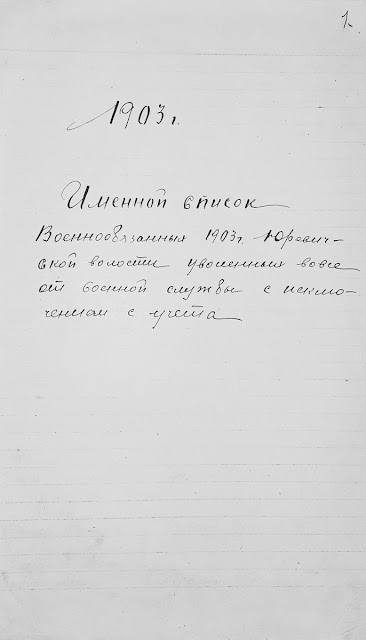 1.
1903г.
Именной список
Военнообязанных 1903г. Юревич-
ской волости уволенных вовсе
от военной службы с исклю-
чением с учета